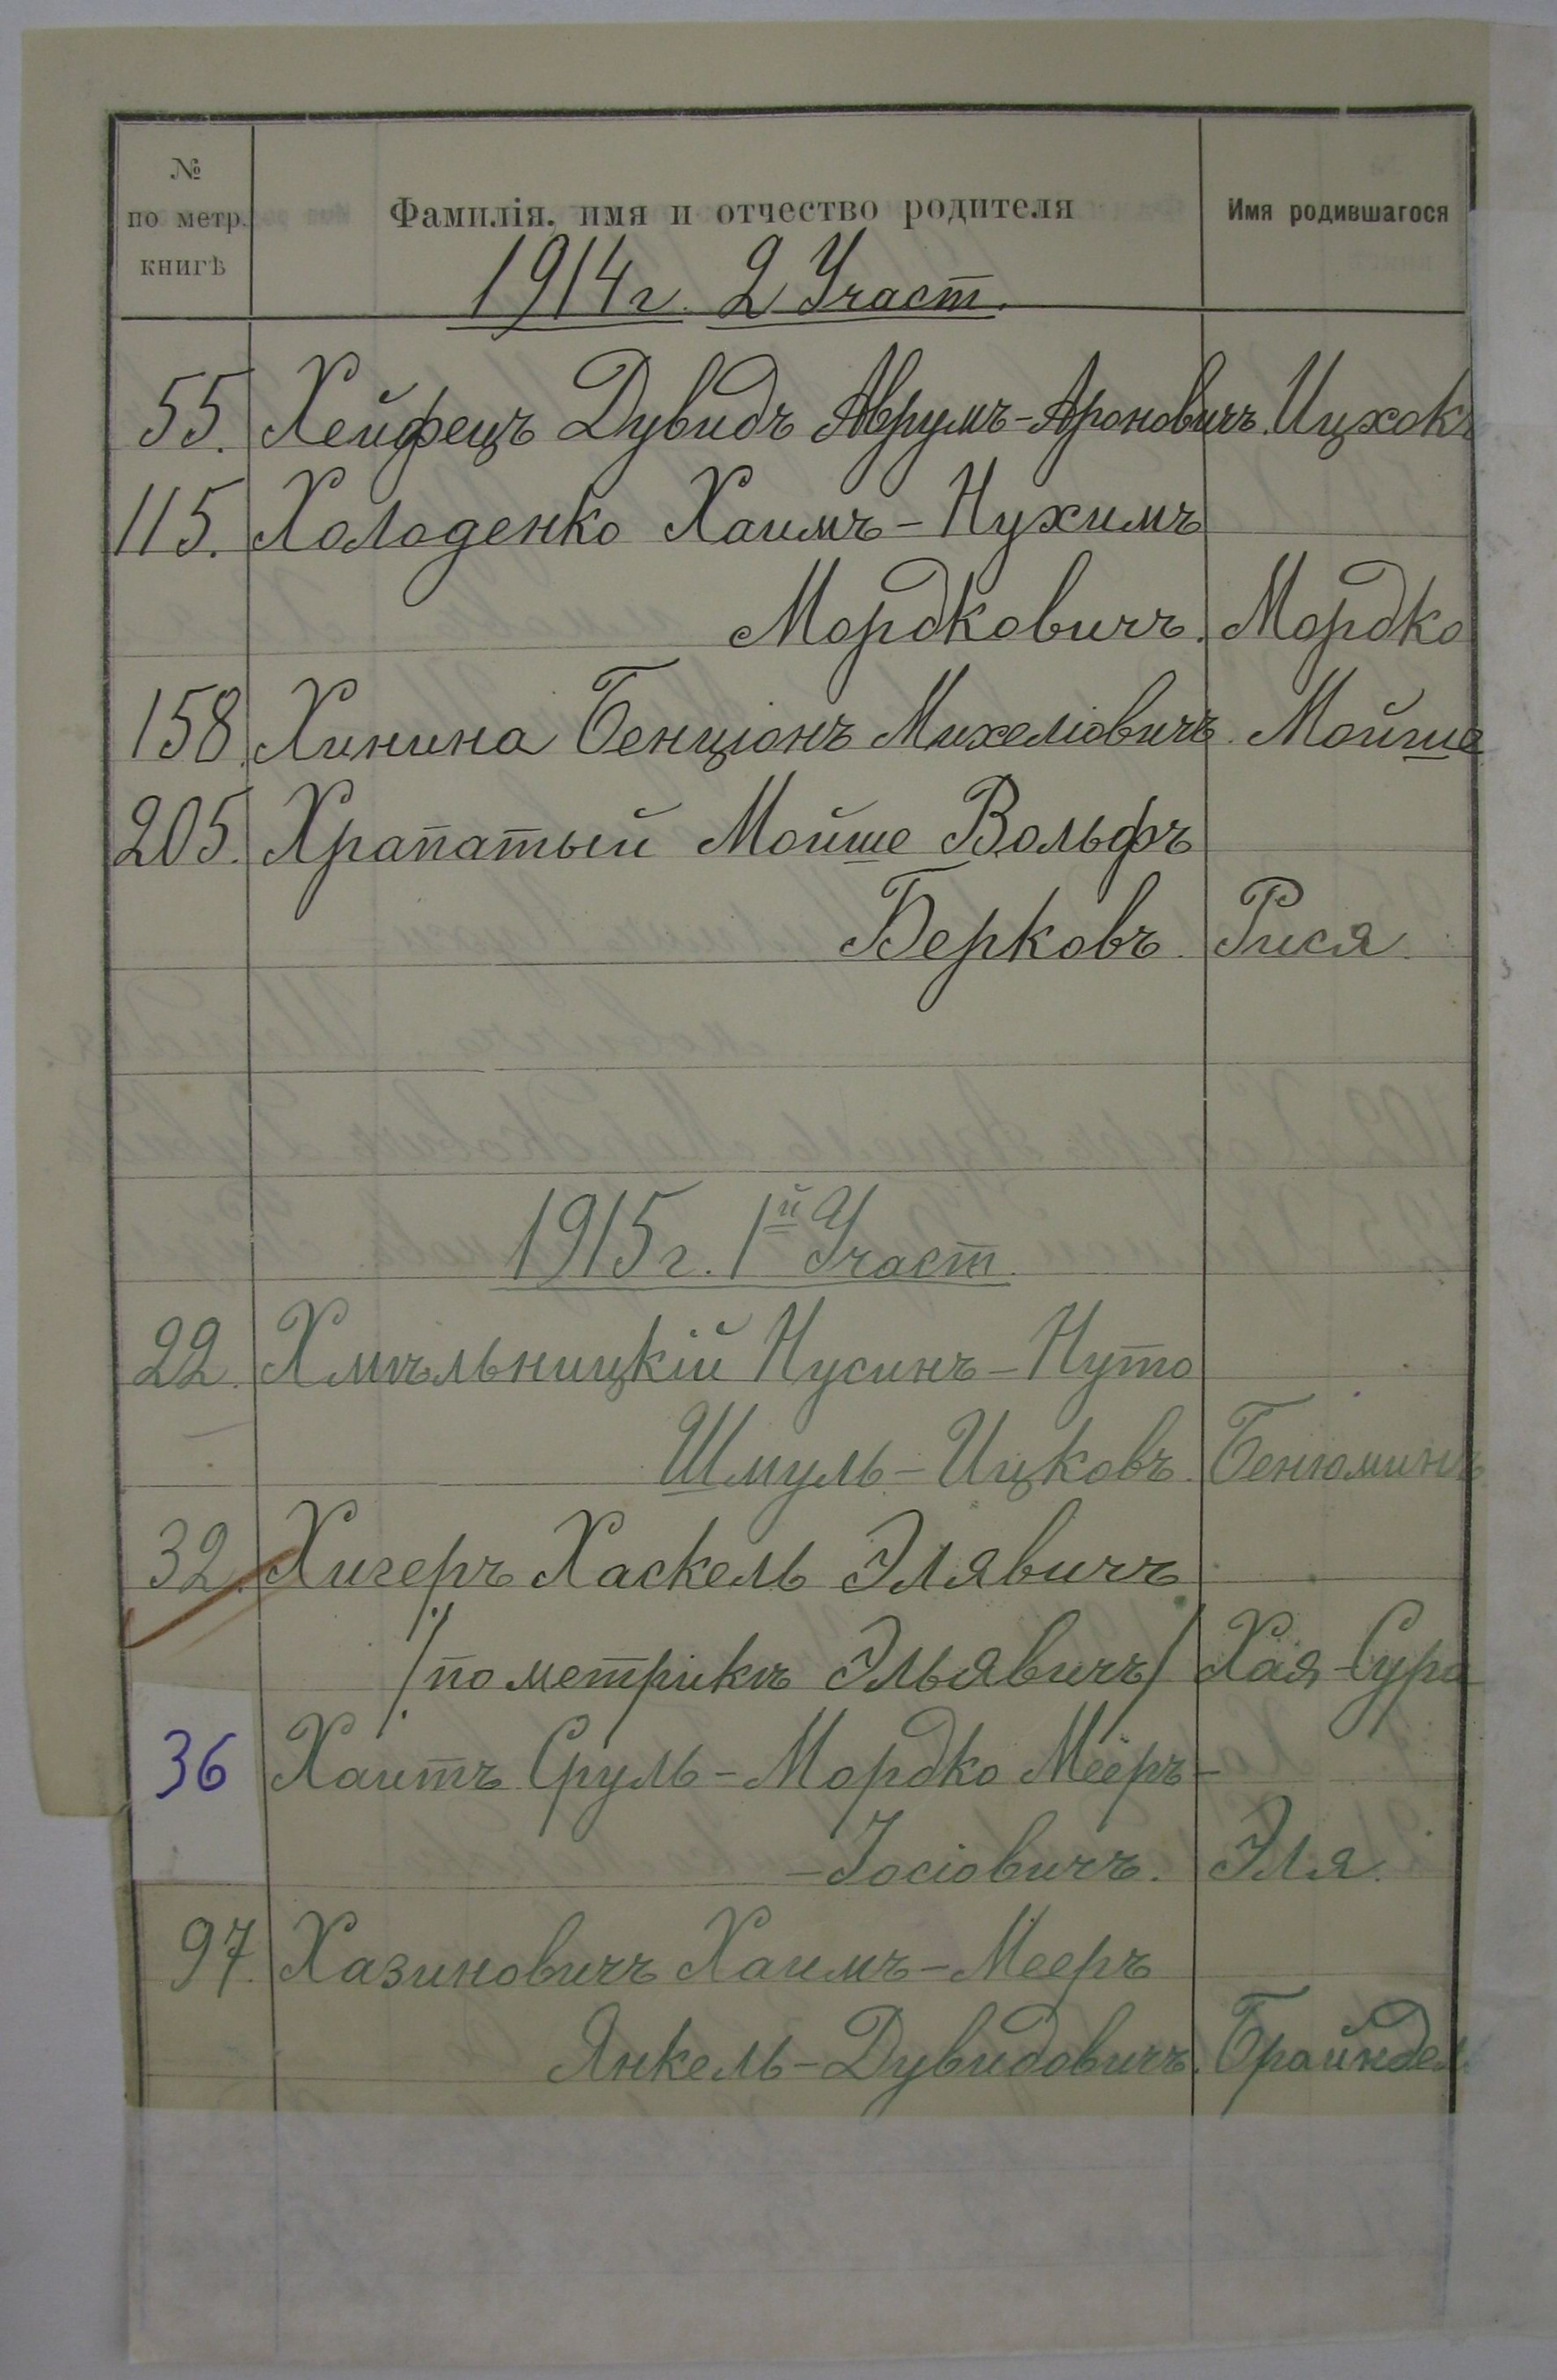 №
по метр.
книгѣ
Фамилія, имя и отчество родителя
Имя родившагося
1914 г. 2 Участ.
55. Хейфецъ Дувидъ Аврумъ-Ароновичъ. Ицхокъ
115. Холоденко Хаимъ-Нухимъ
Мордковичъ. Мордко
158. Хинина Бенціонъ Михеліовичъ. Мойше
205. Храпатый Мойше Вольфъ
Берковъ. Рися.
1915 г. 1й Участ.
22. Хмѣльницкій Нусинъ-Нуто
Шмуль-Ицковъ. Бенюминъ
32. Хигеръ Хаскель Элявичъ
/по метрикѣ Эльявичъ/ Хая-Сура
36 Хаитъ Сруль-Мордко Мееръ-
-Іосіовичъ. Эля.
97. Хазиновичъ Хаимъ-Мееръ
Янкель-Дувидовичъ. Брайндель